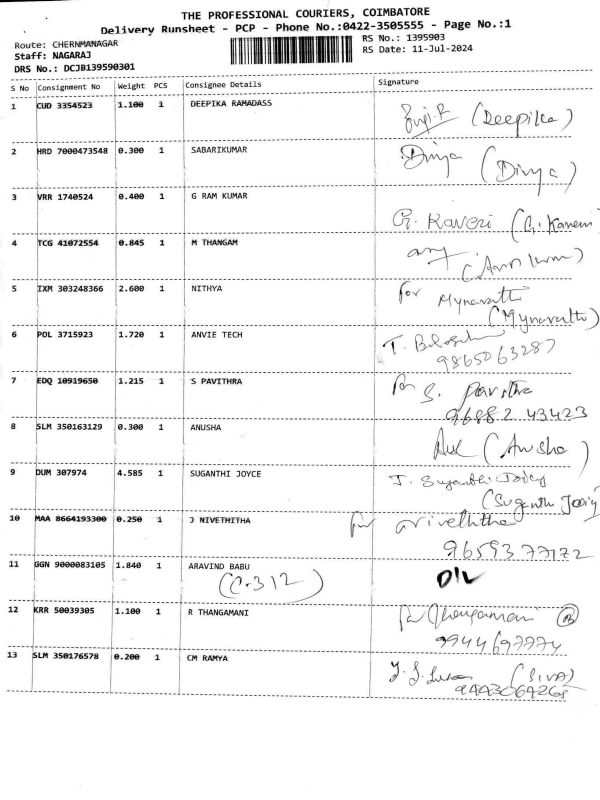 THE PROFESSIONAL COURIERS, COIMBATORE
Delivery Runsheet - PCP - Phone No.:0422-3505555 - Page No.:1
Route: CHERNMANAGAR RS No.: 1395903
Staff: NAGARAJ RS Date: 11-Jul-2024
DRS No.: DCJB139590301
S No Consignment No Weight PCS Consignee Details Signature
1 CUD 3354523 1.100 1 DEEPIKA RAMADASS (Deepika)
2 HRD 7000473548 0.300 1 SABARIKUMAR Divya (Divya)
3 VRR 1740524 0.400 1 G RAM KUMAR G. Kaveri (G. Kaveri
4 TCG 41072554 0.845 1 M THANGAM
5 IXM 303248366 2.600 1 NITHYA for Mynavathi
(Mynavathi)
6 POL 3715923 1.720 1 ANVIE TECH T.
9865063287
7 EDQ 10919650 1.215 1 S PAVITHRA for S. Pavithra
96882 43423
8 SLM 350163129 0.300 1 ANUSHA (Anusha)
9 DUM 307974 4.585 1 SUGANTHI JOYCE J. Suganthi Joicy
(Suganthi Joicy
10 MAA 8664193300 0.250 1 J NIVETHITHA for Nivethitha
96593 77172
11 GGN 9000083105 1.840 1 ARAVIND BABU
(C-312)
12 KRR 50039305 1.100 1 R THANGAMANI for Thangamani
9944697774
13 SLM 350176578 0.200 1 CM RAMYA (SIVA)